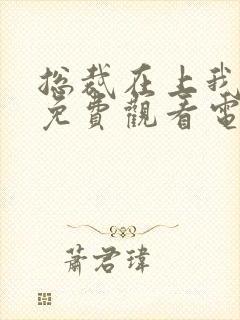 总裁在上我
免費觀看電
蕭君瑋